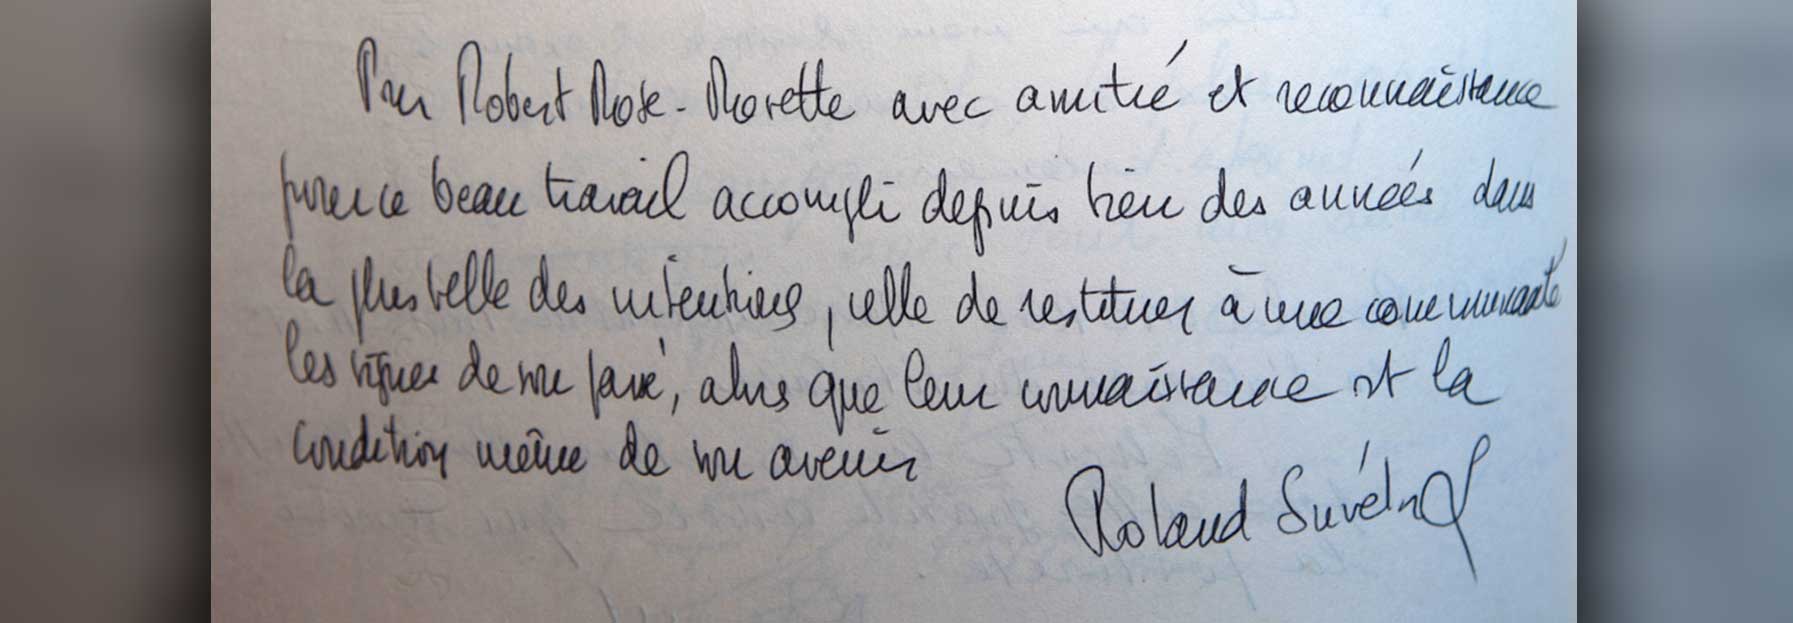 Pour Robert Rose-Rosette avec amitié et reconnaissance
pour ce beau travail accompli depuis bien des années dans
la plus belle des intentions, celle de restituer à une communauté
les lignes de son passé, alors que leur connaissance est la
condition même de son avenir
Roland Suvélor